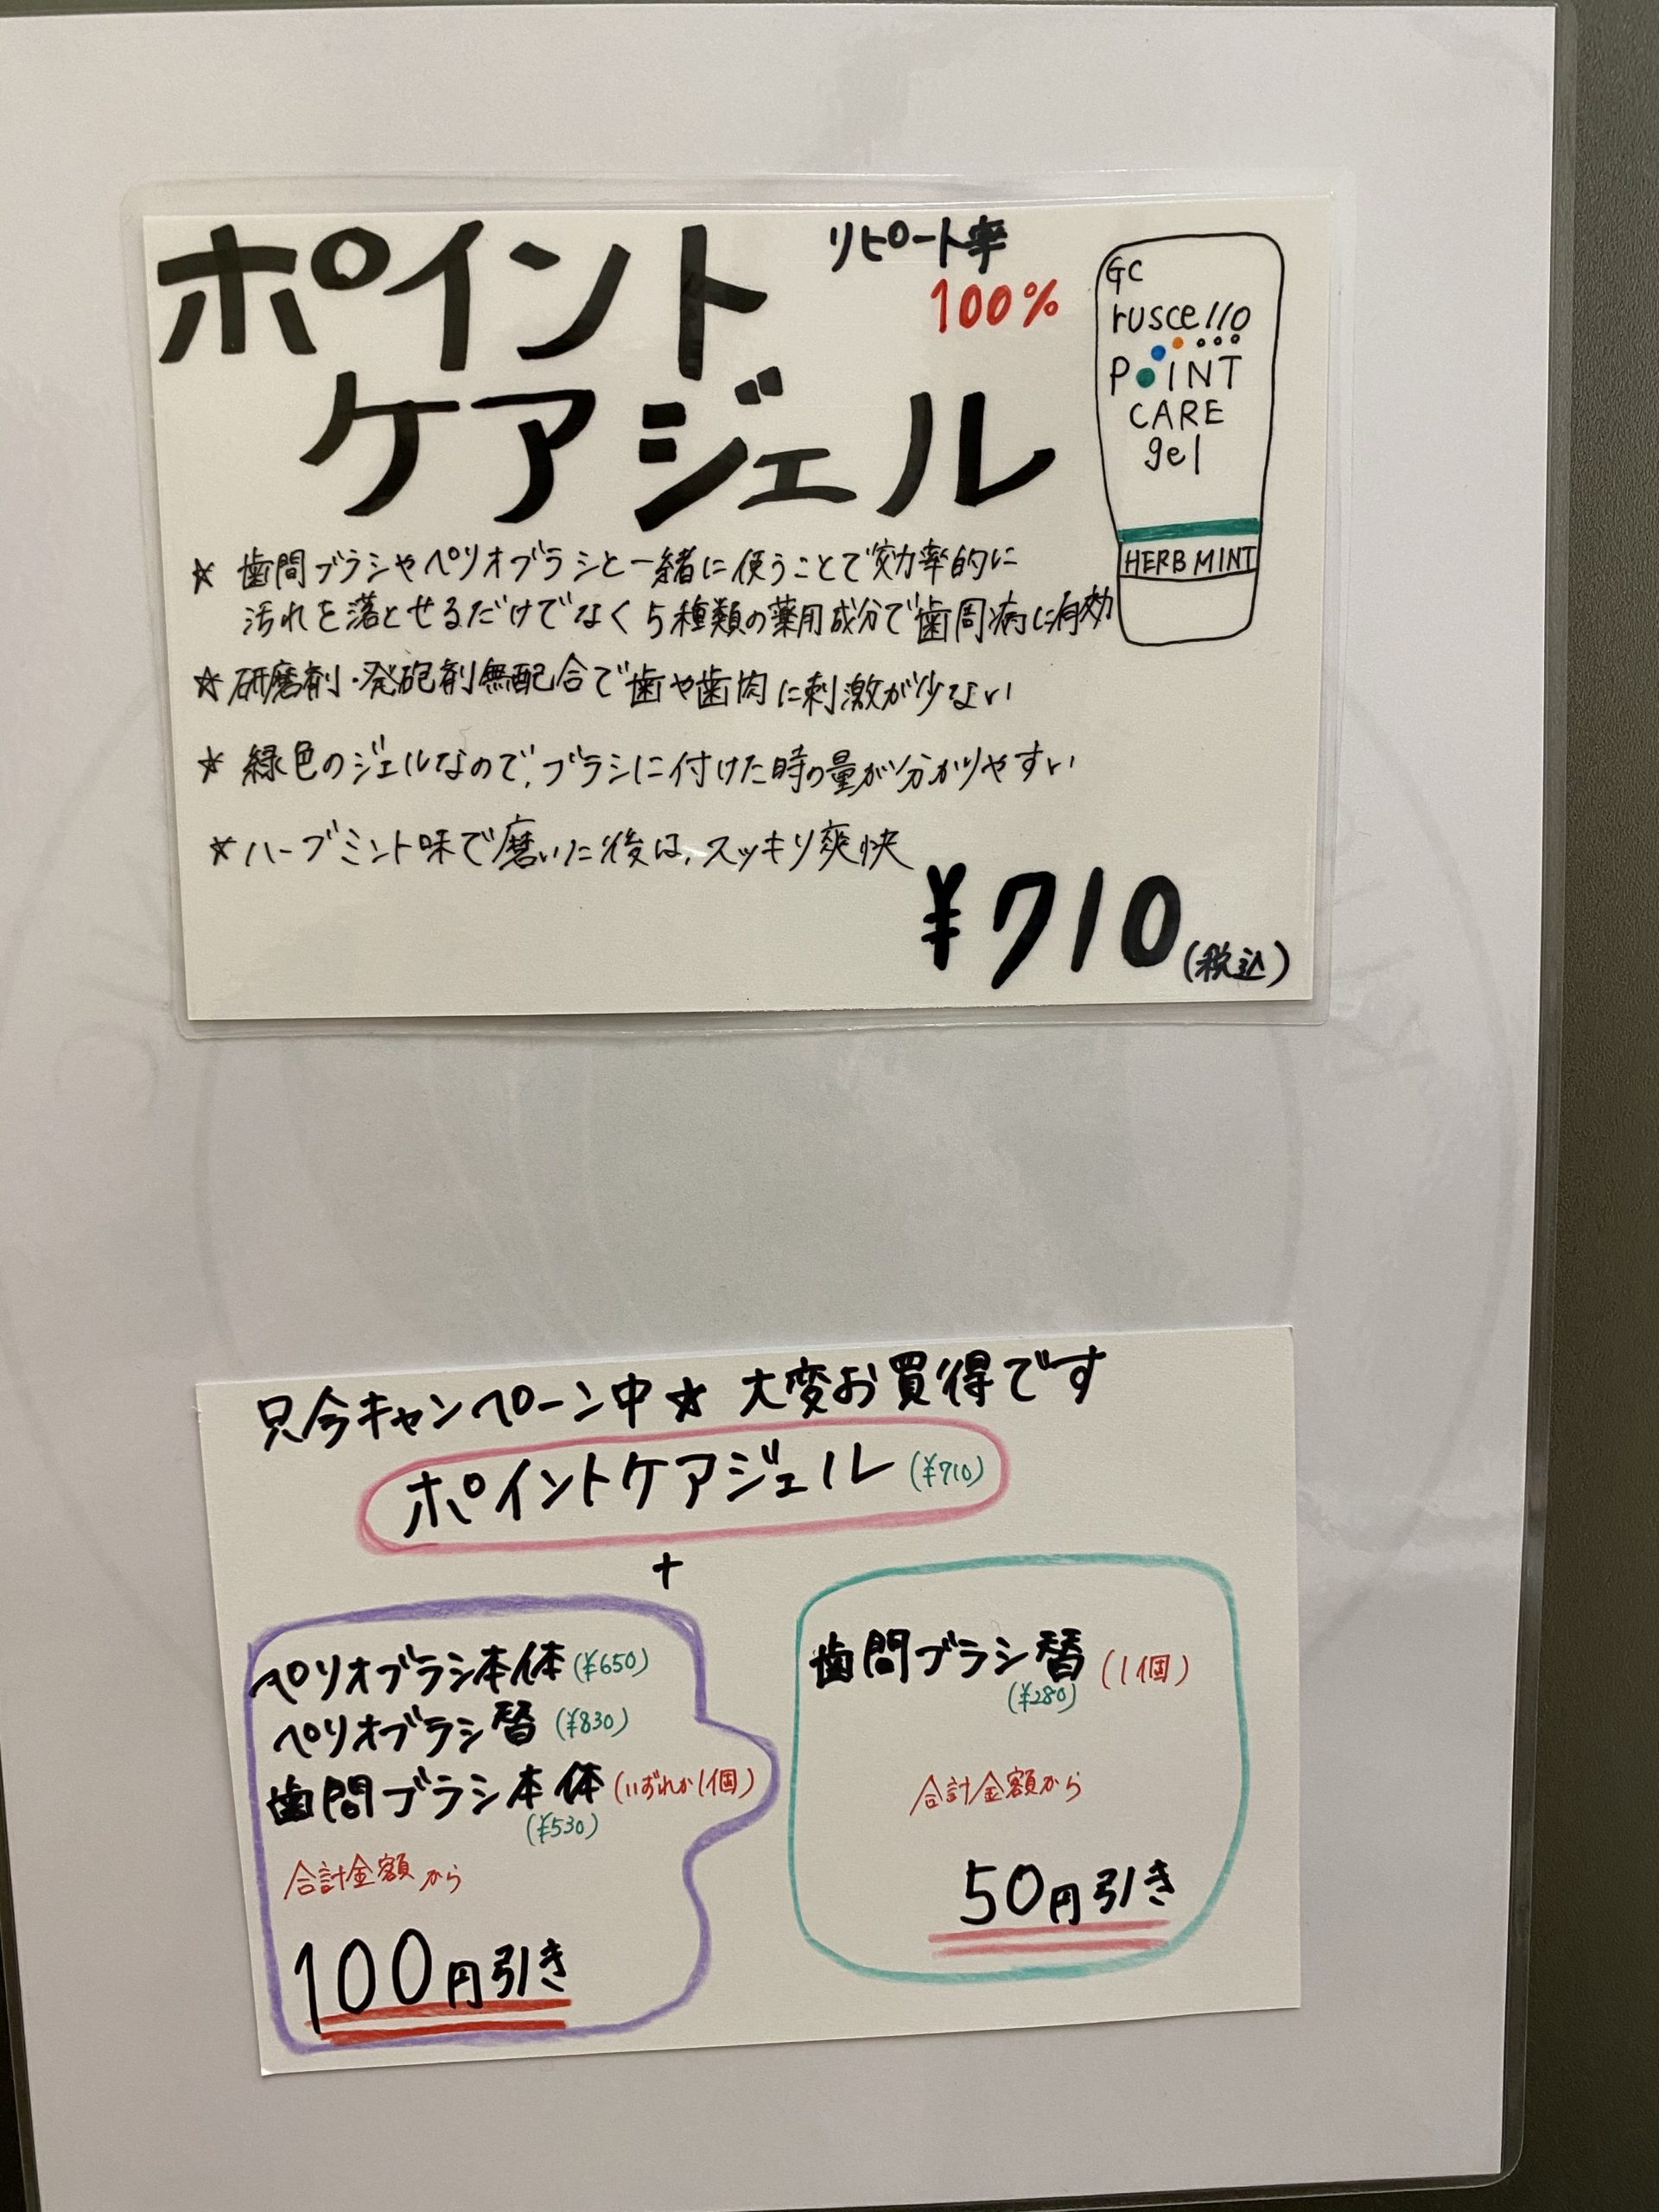 ポイント
ケアジェル
リピート率
100%
GC
ruscello
POINT
CARE
gel
HERB MINT
☆ 歯間ブラシやペリオブラシと一緒に使うことで効率的に
汚れを落とせるだけでなく5種類の薬用成分で歯周病に有効
☆ 研磨剤・発砲剤無配合で歯や歯肉に刺激が少ない
☆ 緑色のジェルなので、ブラシに付けた時の量が分かりやすい
☆ ハーブミント味で磨いた後は、スッキリ爽快
¥710(税込)
只今キャンペーン中☆ 大変お買得です
ポイントケアジェル(¥710)
+
ペリオブラシ本体(¥650)
ペリオブラシ替(¥830)
歯間ブラシ本体(いずれか1個)
(¥530)
合計金額から
100円引き
歯間ブラシ替(1個)
(¥280)
合計金額から
50円引き